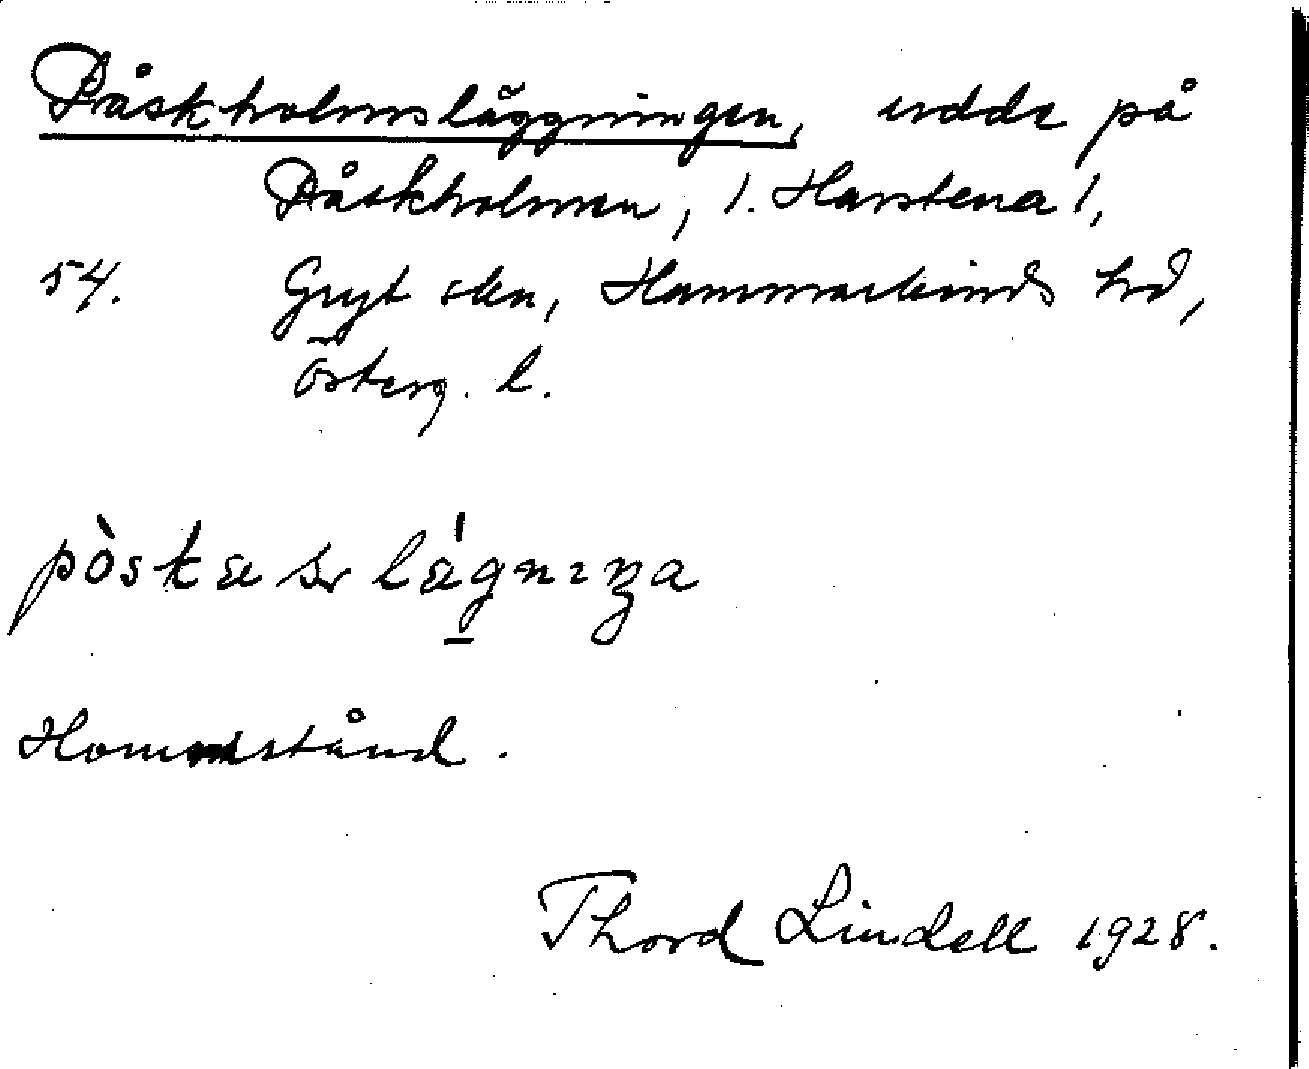 Påskholmsläggningen, udde på
Påskholmen, 1. Harstena 1,
54. Gryt skn, Hammarkinds hd,
Österg. l.
lägnıŋa
Hommstånd.
Thord Lindell 1928.